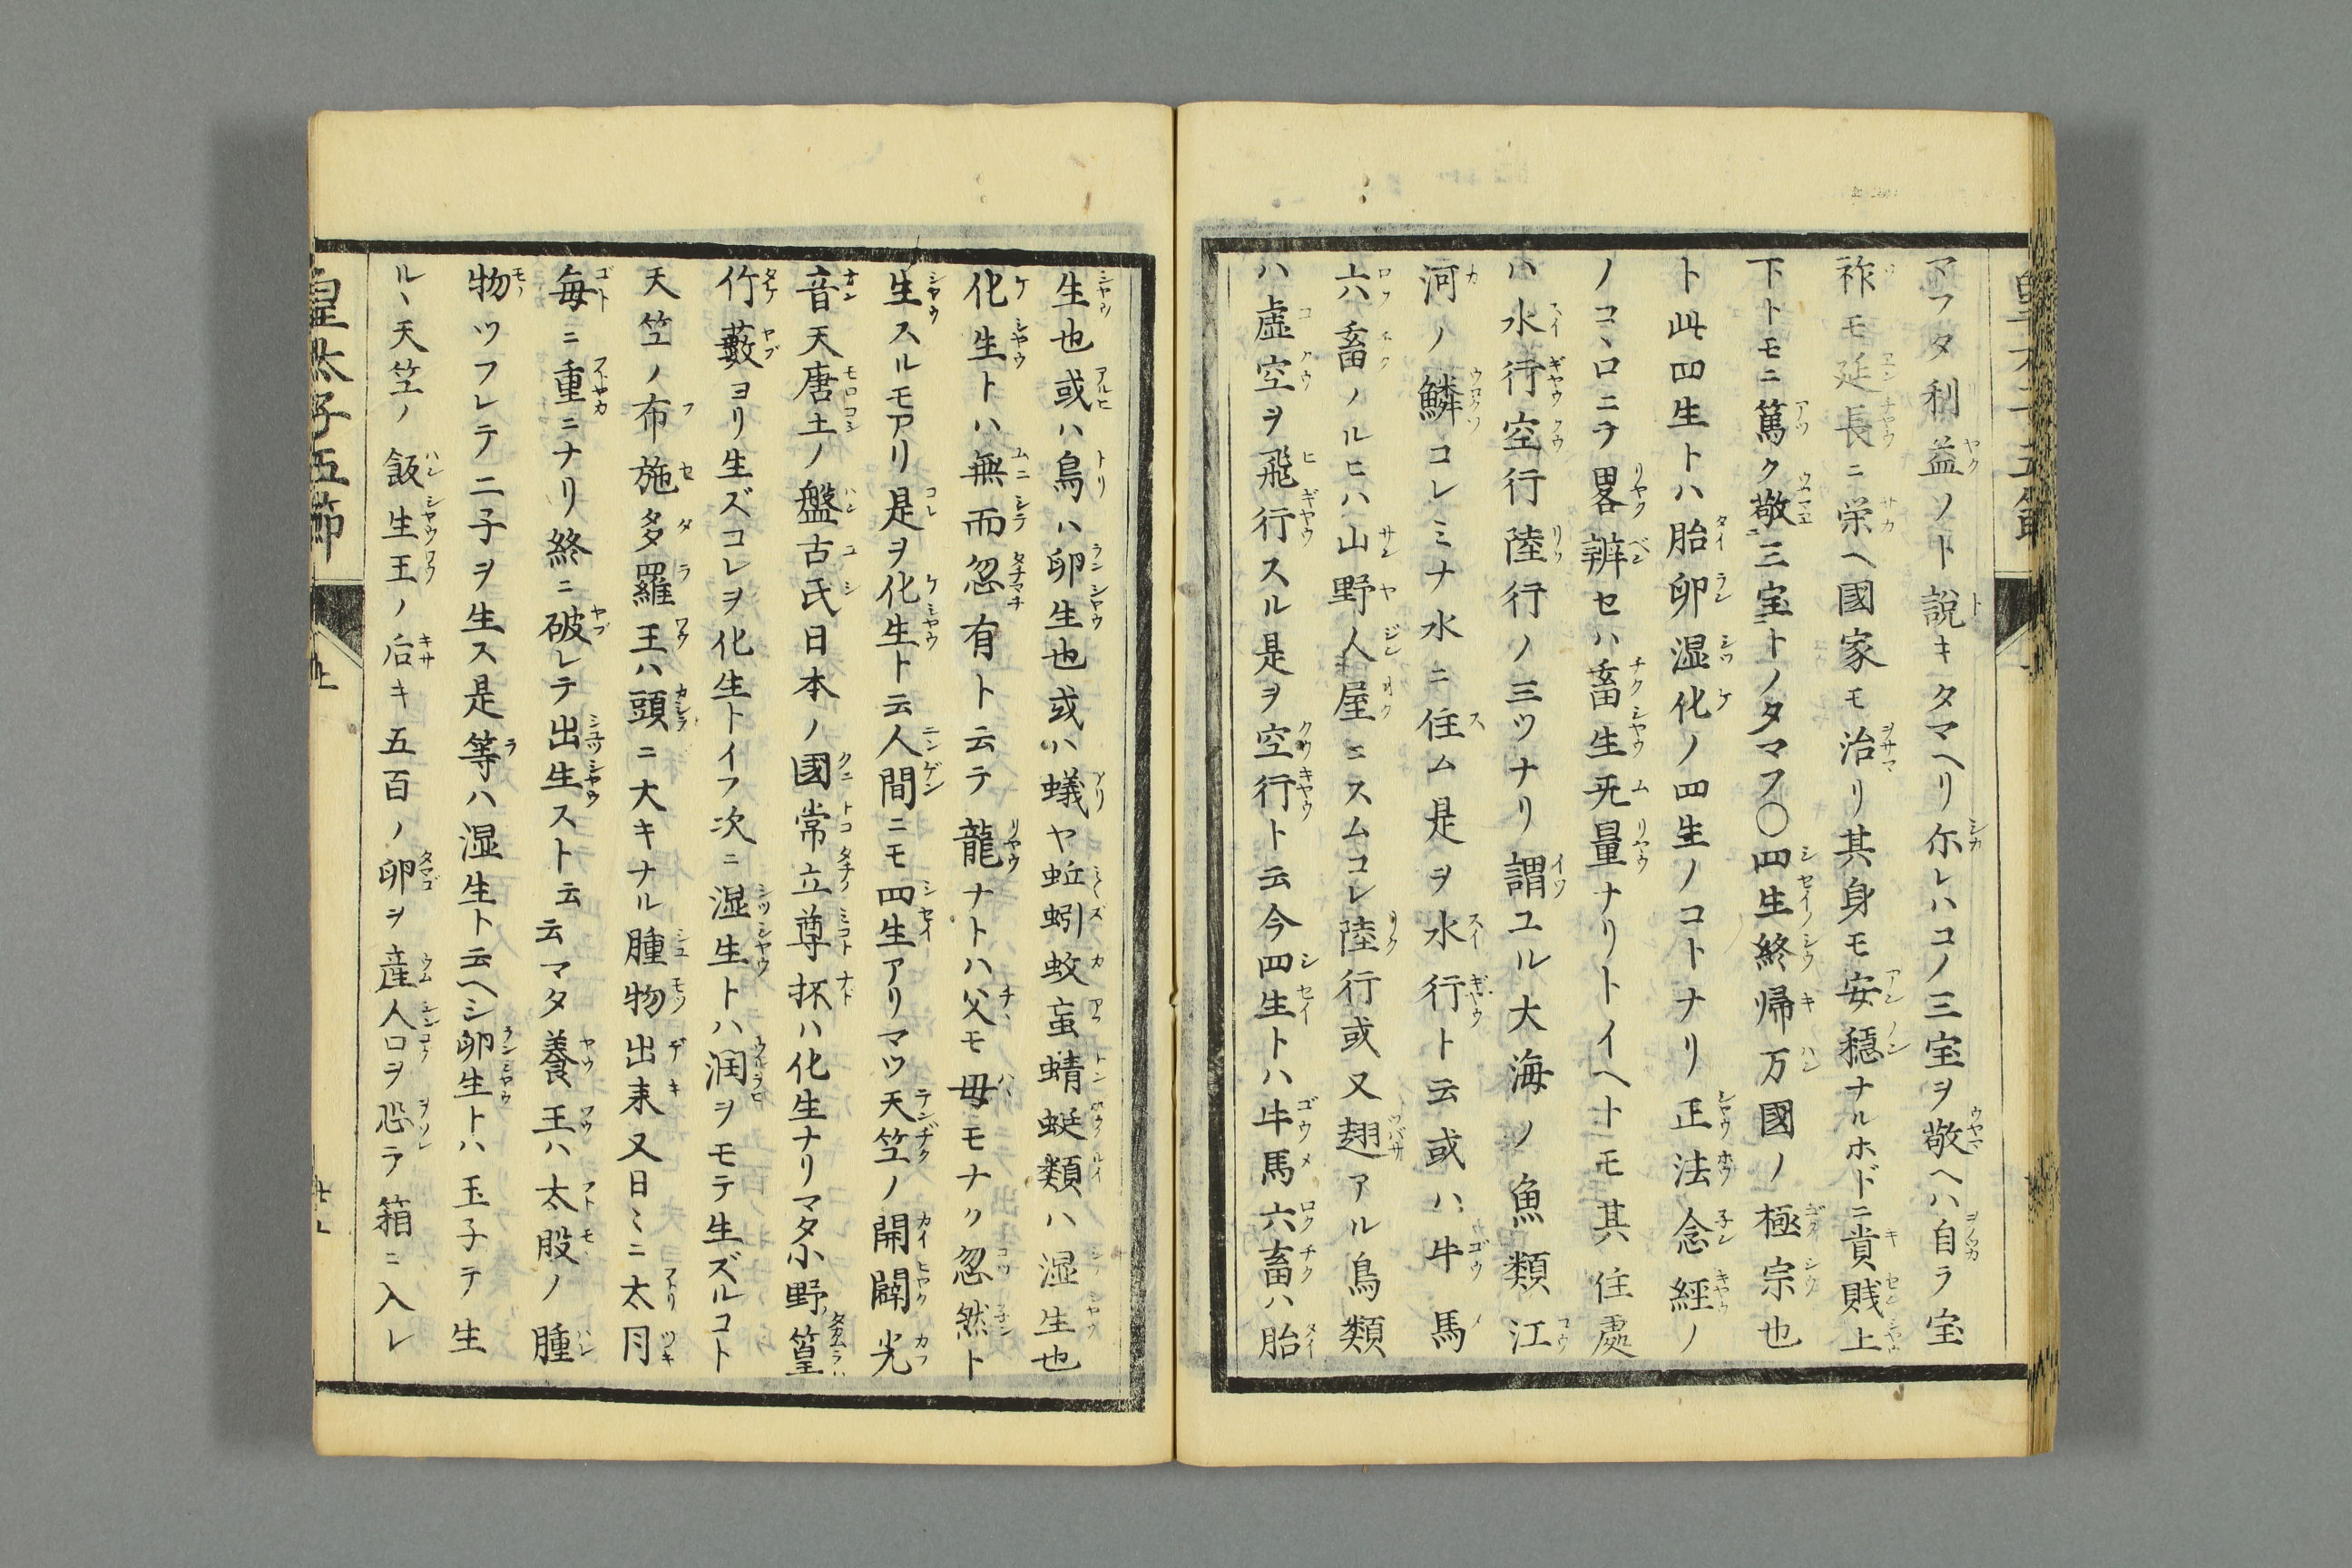 マフタ利益ソト説キタマヘリ尓レハコノ三宝ヲ敬ヘハ自ラ宝
祚モ延長ニ栄ヘ國家モ治リ其身モ安穏ナルホドニ貴賎上
下トモニ篤ク敬三宝トノタマフ〇四生終帰万國ノ極宗也
ト此四生トハ胎卵湿化ノ四生ノコトナリ正法念經ノ
ノコヽロニテ畧辨セハ畜生無量ナリトイヘトモ其住處
ハ水行空行陸行ノ三ツナリ謂ユル大海ノ魚類江
河ノ鱗コレミナ水ニ住ム是ヲ水行ト云或ハ牛馬
六畜ノルヒハ山野人屋ニスムコレ陸行或又翅アル鳥類
ハ虚空ヲ飛行スル是ヲ空行ト云今四生トハ牛馬六畜ハ胎
生也或ハ鳥ハ卵生也或ハ蟻ヤ蚯蚓蚊䖟蜻蜓類ハ湿生也
化生トハ無而忽有ト云テ龍ナトハ父モ母モナク忽然ト
生スルモアリ是ヲ化生ト云人間ニモ四生アリマツ天笠ノ開闢光
音天唐土ノ盤古氏日本ノ國常立尊抔ハ化生ナリマタ小野篁
竹藪ヨリ生ズコレヲ化生トイフ次ニ湿生トハ潤ヲモテ生ズルコト
天笠ノ布施多羅王ハ頭ニ大キナル腫物出来又日ミニ太月
毎ニ重ニナリ終ニ破レテ出生スト云云マタ養王ハ太股ノ腫
物ツフレテ二子ヲ生ス是等ハ湿生ト云ヘシ卵生トハ玉子テ生
ルヽ天笠ノ飯生王ノ后キ五百ノ卵ヲ産人口ヲ恐テ箱ニ入レ
皇太子五節